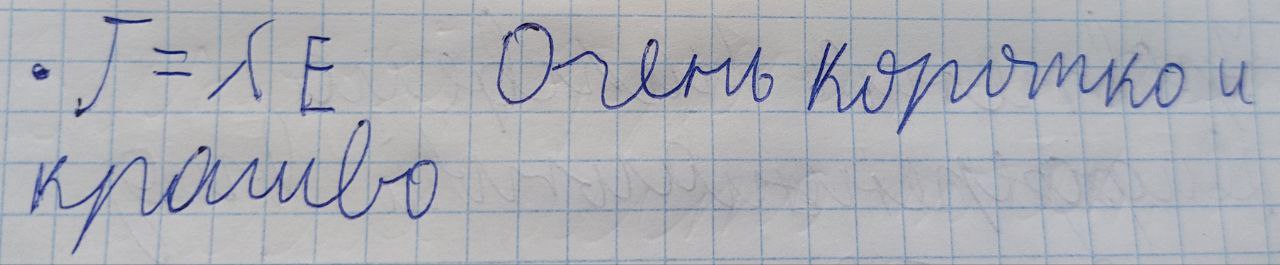 · J = λ E Очень коротко и
красиво